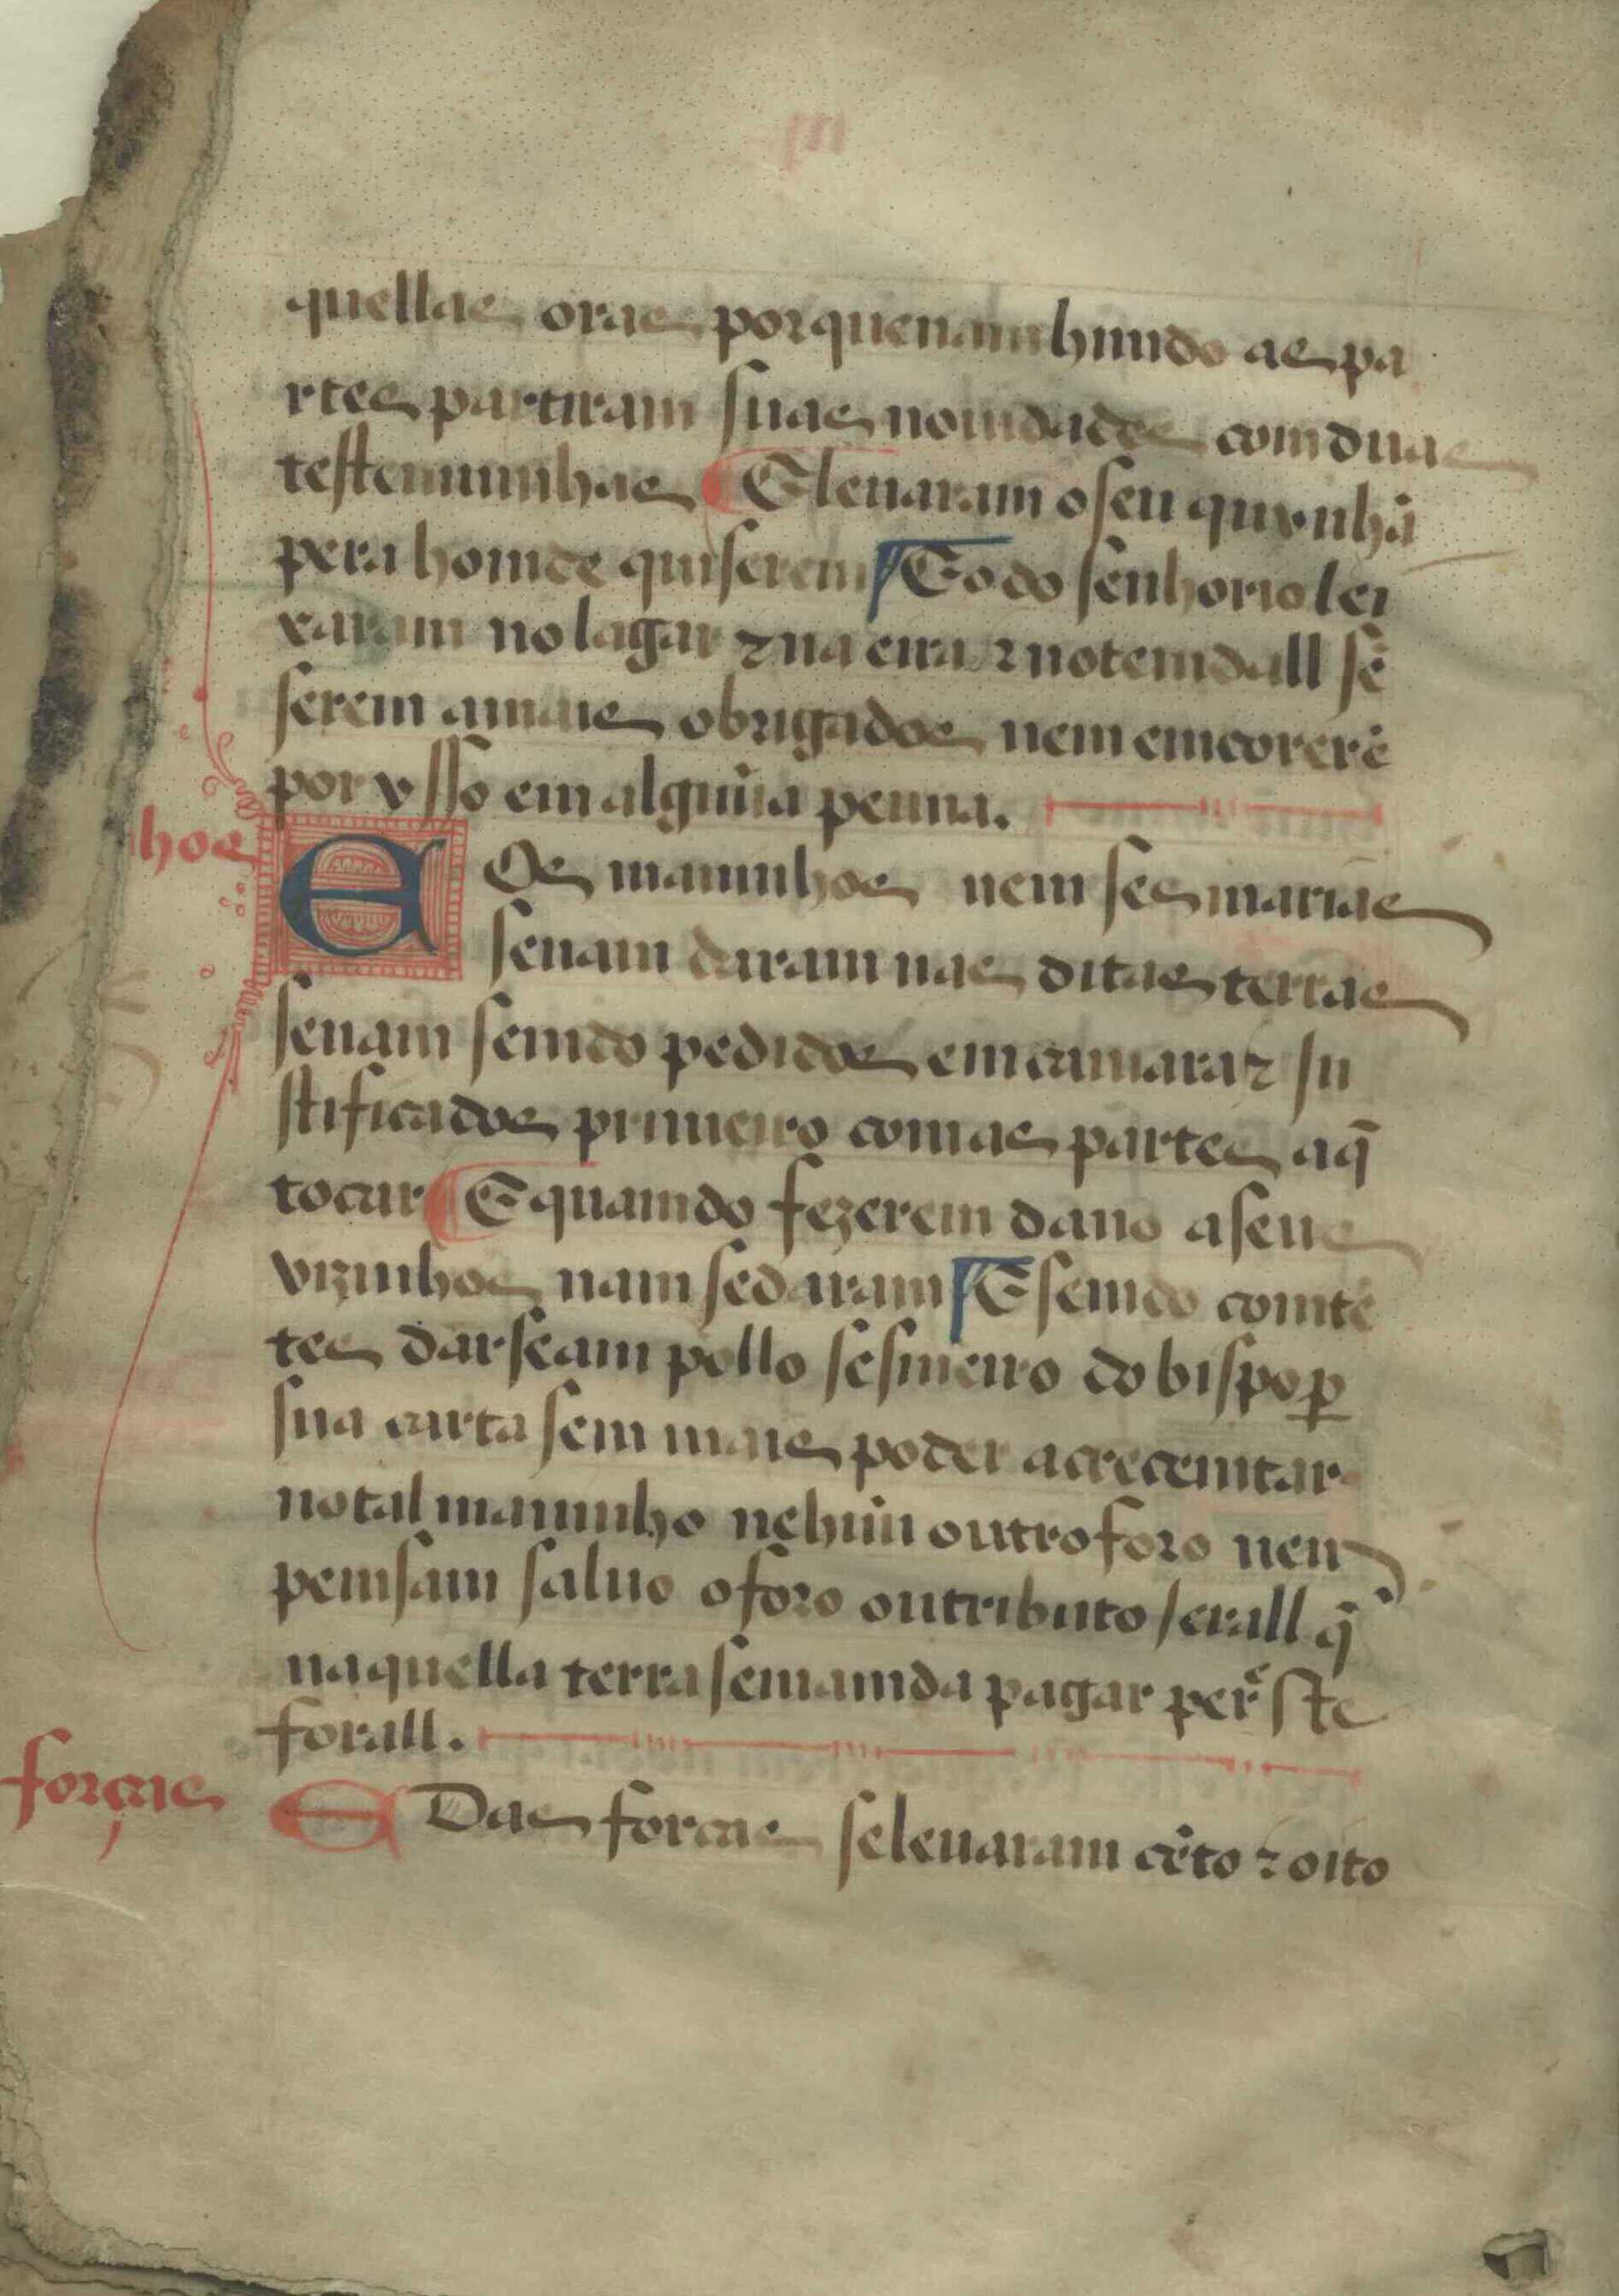 quellas oras porque nam himdo as pa
rtes partiram suas nouidades com duas
testemunhas E leuaram o seu quynhã
pera homde quiserem E o do senhorio lei
xaram no lagar ⁊ na eira ⁊ no temdall sẽ
serem a mais obrigados nem emcorerẽ
por ysso em alguũa penna.
hos
E Os maninhos nem sesmarias
senam daram nas ditas terras
senam semdo pedidos em camara ⁊ Ju
stificados primeiro com as partes a q̃
tocar E quamdo fezerem dano a seus
vizinhos nam se daram E semdo comtẽ
tes darseam pello sesmeiro do bispo ꝑ
sua carta sem mais poder acrecemtar
no tal maninho nehuũ outro foro nen
pemsam saluo o foro ou tributo Jerall q̃
naquella terra se mamda pagar per ẽste
forall.
forças
E Das forcas se leuaram cẽto ⁊ oito